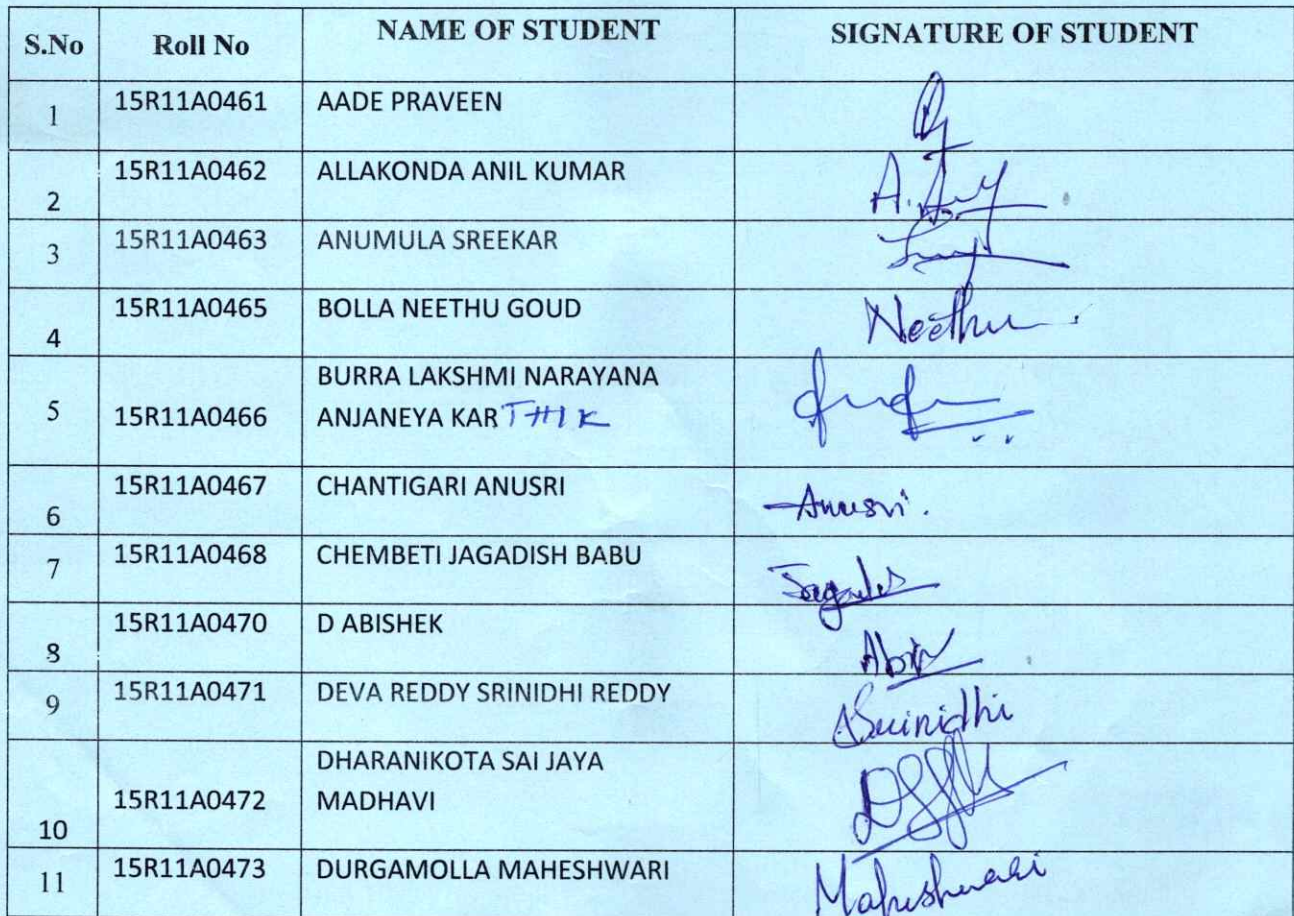 S.No Roll No NAME OF STUDENT SIGNATURE OF STUDENT
1 15R11A0461 AADE PRAVEEN
2 15R11A0462 ALLAKONDA ANIL KUMAR
3 15R11A0463 ANUMULA SREEKAR
4 15R11A0465 BOLLA NEETHU GOUD Neethu
BURRA LAKSHMI NARAYANA
5 15R11A0466 ANJANEYA KARTHIK
6 15R11A0467 CHANTIGARI ANUSRI Anusri.
7 15R11A0468 CHEMBETI JAGADISH BABU
8 15R11A0470 D ABISHEK
9 15R11A0471 DEVA REDDY SRINIDHI REDDY Srinidhi
DHARANIKOTA SAI JAYA
10 15R11A0472 MADHAVI
11 15R11A0473 DURGAMOLLA MAHESHWARI Maheshwari